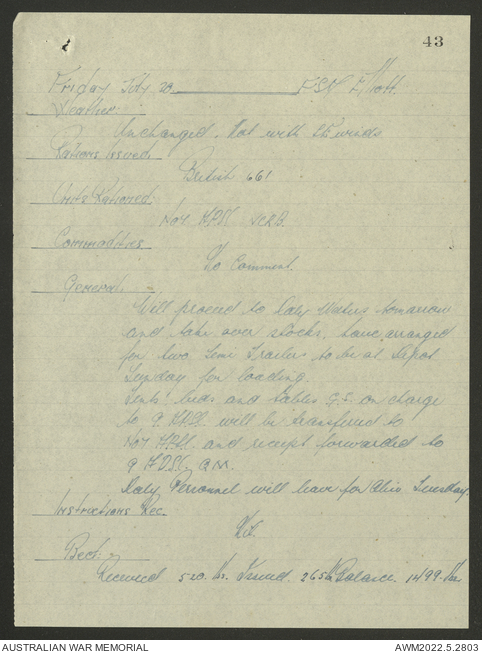 43
Friday July 20 FSD Elliott.
Weather.
Unchanged. Hot with SE winds
Rations Issued.
British 661
Units Rationed:
No4
Commodities
No Comment.
General.
Will proceed to Daly Waters tomorrow
and take over stocks, have arranged
for two Semi Trailers to be at Depot
Sunday for loading.
Tents' beds and tables G.S. on charge
to 9 will be transferred to
No4 and receipt forwarded to
9 FDSD. QM.
Daly Personnel will leave for Alice Tuesday.
Instructions Rec.
Nil.
Beef:
Received 520 lbs. Issued. 265 Balance. 1499 lbs
AUSTRALIAN WAR MEMORIAL AWM2022.5.2803